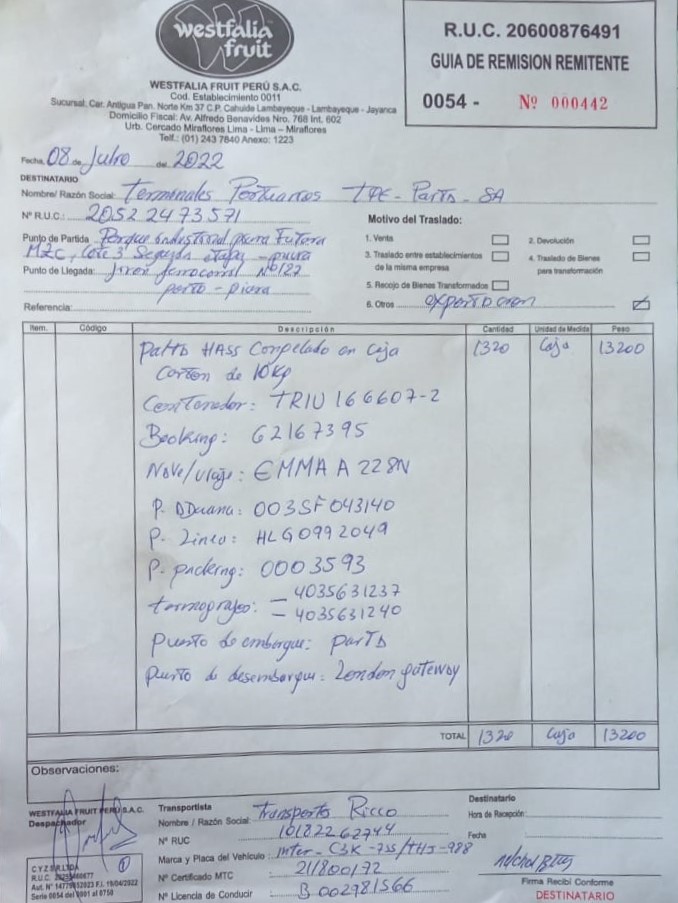 westfalia
fruit
WESTFALIA FRUIT PERÚ S.A.C.
Cod. Establecimiento 0011
Sucursal: Car. Antigua Pan. Norte Km 37 C.P. Cahuide Lambayeque - Lambayeque - Jayanca
Domicilio Fiscal: Av. Alfredo Benavides Nro. 768 Int. 602
Urb. Cercado Miraflores Lima - Lima – Miraflores
Telf.: (01) 243 7840 Anexo: 1223
R.U.C. 20600876491
GUIA DE REMISION REMITENTE
0054 - Nº 000442
Fecha, 08 de Julio del 2022
DESTINATARIO
Nombre/ Razón Social: Terminales Portuarios TPE- Paita - SA
N° R.U.C.: 20522473571
Punto de Partida Parque industrial piura Futura
MZC, Lote 3 Segunda etapa - piura
Punto de Llegada: Jiron ferrocarril Nº127
paita - piura
Referencia:
Motivo del Traslado:
1. Venta
2. Devolución
3. Traslado entre establecimientos
de la misma empresa
4. Traslado de Bienes
para transformación
5. Recojo de Bienes Transformados
6. Otros exportacion
Item. Código Descripción Cantidad Unidad de Medida Peso
Palta HASS Congelado en Caja 1320 Caja 13200
Carton de 10Kg
Contenedor: TRIU 166607-2
Booking: 62167395
Nave/viaje: EMMA A 228N
P. Aduana: 003SF043140
P. Linea: HLG0992049
P. packing: 0003593
termografos: - 4035631237
- 4035631240
puerto de embarque: paita
puerto de desembarque: London gateway
TOTAL 1320 Caja 13200
Observaciones:
WESTFALIA FRUIT PERÚ S.A.C.
Despachador
Transportista
Nombre / Razón Social: Transporte Ricco
N° RUC 10182262744
Marca y Placa del Vehículo: inter- C3K-755/THJ-988
N° Certificado MTC 21/800172
N° Licencia de Conducir B 002981566
Destinatario
Hora de Recepción:
Fecha
Firma Recibí Conforme
DESTINATARIO
Serie 0054 del 0001 al 0750